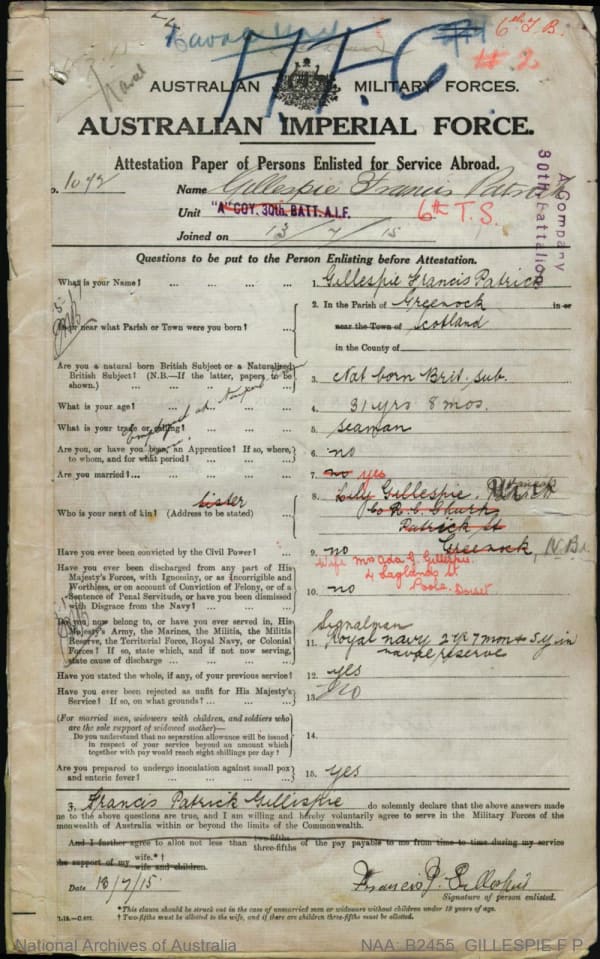 6th T. B.
Naval
AUSTRALIAN MILITARY FORCES.
AUSTRALIAN IMPERIAL FORCE.
Attestation Paper of Persons Enlisted for Service Abroad.
o. 1072 Name Gillespie Francis Patrick
Unit "A" COY. 30th. BATT. A.I.F. 6th T.S.
Joined on 13/7/15
A Company
30th. Battalion
Questions to be put to the Person Enlisting before Attestation.
What is your Name? ... ... ... ... 1. Gillespie Francis Patrick
2. In the Parish of Greenock in or
or near what Parish or Town were you born? ... near the Town of Scotland
in the County of
Are you a natural born British Subject or a Naturalized
British Subject? (N.B.—If the latter, papers to be
shown.) ... ... ... ... 3. Nat born Brit. sub.
What is your age? ... ... ... ... 4. 31 yrs 8 mos.
What is your trade or calling? ... ... 5. Seaman
Are you, or have you been, an Apprentice? If so, where,
to whom, and for what period? ... ... 6. no
Are you married? ... ... ... ... 7. no yes
8. Lily Gillespie
sister
Who is your next of kin? (Address to be stated) ... c/o R. C. Church
Patrick St
Greenock, N.B.
Have you ever been convicted by the Civil Power? ... 9. no
Wife Mrs Ada G. Gillespie
4 Laglands St
Poole. Dorset
Have you ever been discharged from any part of His
Majesty's Forces, with Ignominy, or as Incorrigible and
Worthless, or on account of Conviction of Felony, or of a
Sentence of Penal Servitude, or have you been dismissed
with Disgrace from the Navy? ... ... 10. no
Do you now belong to, or have you ever served in, His
Majesty's Army, the Marines, the Militia, the Militia
Reserve, the Territorial Force, Royal Navy, or Colonial
Forces? If so, state which, and if not now serving,
state cause of discharge ... ... ...
Signalman
11. Royal navy 2 yr 7 mon & 5 y in
naval reserve
Have you stated the whole, if any, of your previous service? 12. yes
Have you ever been rejected as unfit for His Majesty's
Service? If so, on what grounds? ... ... 13. No
(For married men, widowers with children, and soldiers who
are the sole support of widowed mother)—
Do you understand that no separation allowance will be issued
in respect of your service beyond an amount which
together with pay would reach eight shillings per day? 14.
Are you prepared to undergo inoculation against small pox
and enteric fever? ... ... ... ... 15. yes
I, Francis Patrick Gillespie do solemnly declare that the above answers made
me to the above questions are true, and I am willing and hereby voluntarily agree to serve in the Military Forces of the
monwealth of Australia within or beyond the limits of the Commonwealth.
And I further agree to allot not less than two-fifths three-fifths of the pay payable to me from time to time during my service
the support of my wife.* † wife and children.
Date 13/7/15. Francis P. Gillespie
Signature of person enlisted.
*This clause should be struck out in the case of unmarried men or widowers without children under 18 years of age.
† Two-fifths must be allotted to the wife, and if there are children three-fifths must be allotted.
National Archives of Australia NAA: B2455, GILLESPIE F P